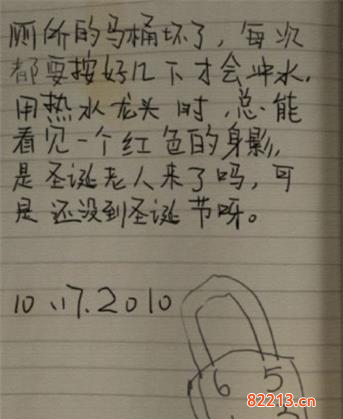 厕所的马桶坏了,每次
都要按好几下才会冲水.
用热水龙头时,总能
看见一个红色的身影,
是圣诞老人来了吗,可
是还没到圣诞节呀。
10.17.2010
6 5
82213.cn